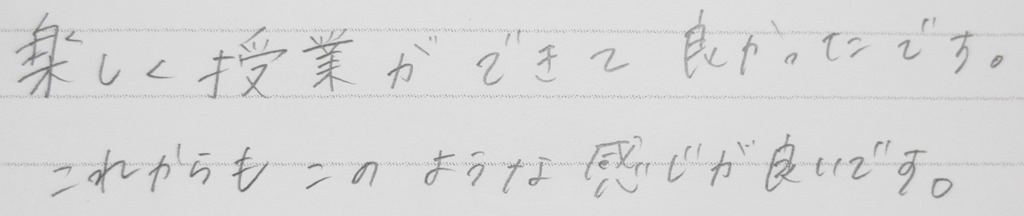 楽しく授業ができて良かったです。
これからもこのような感じが良いです。